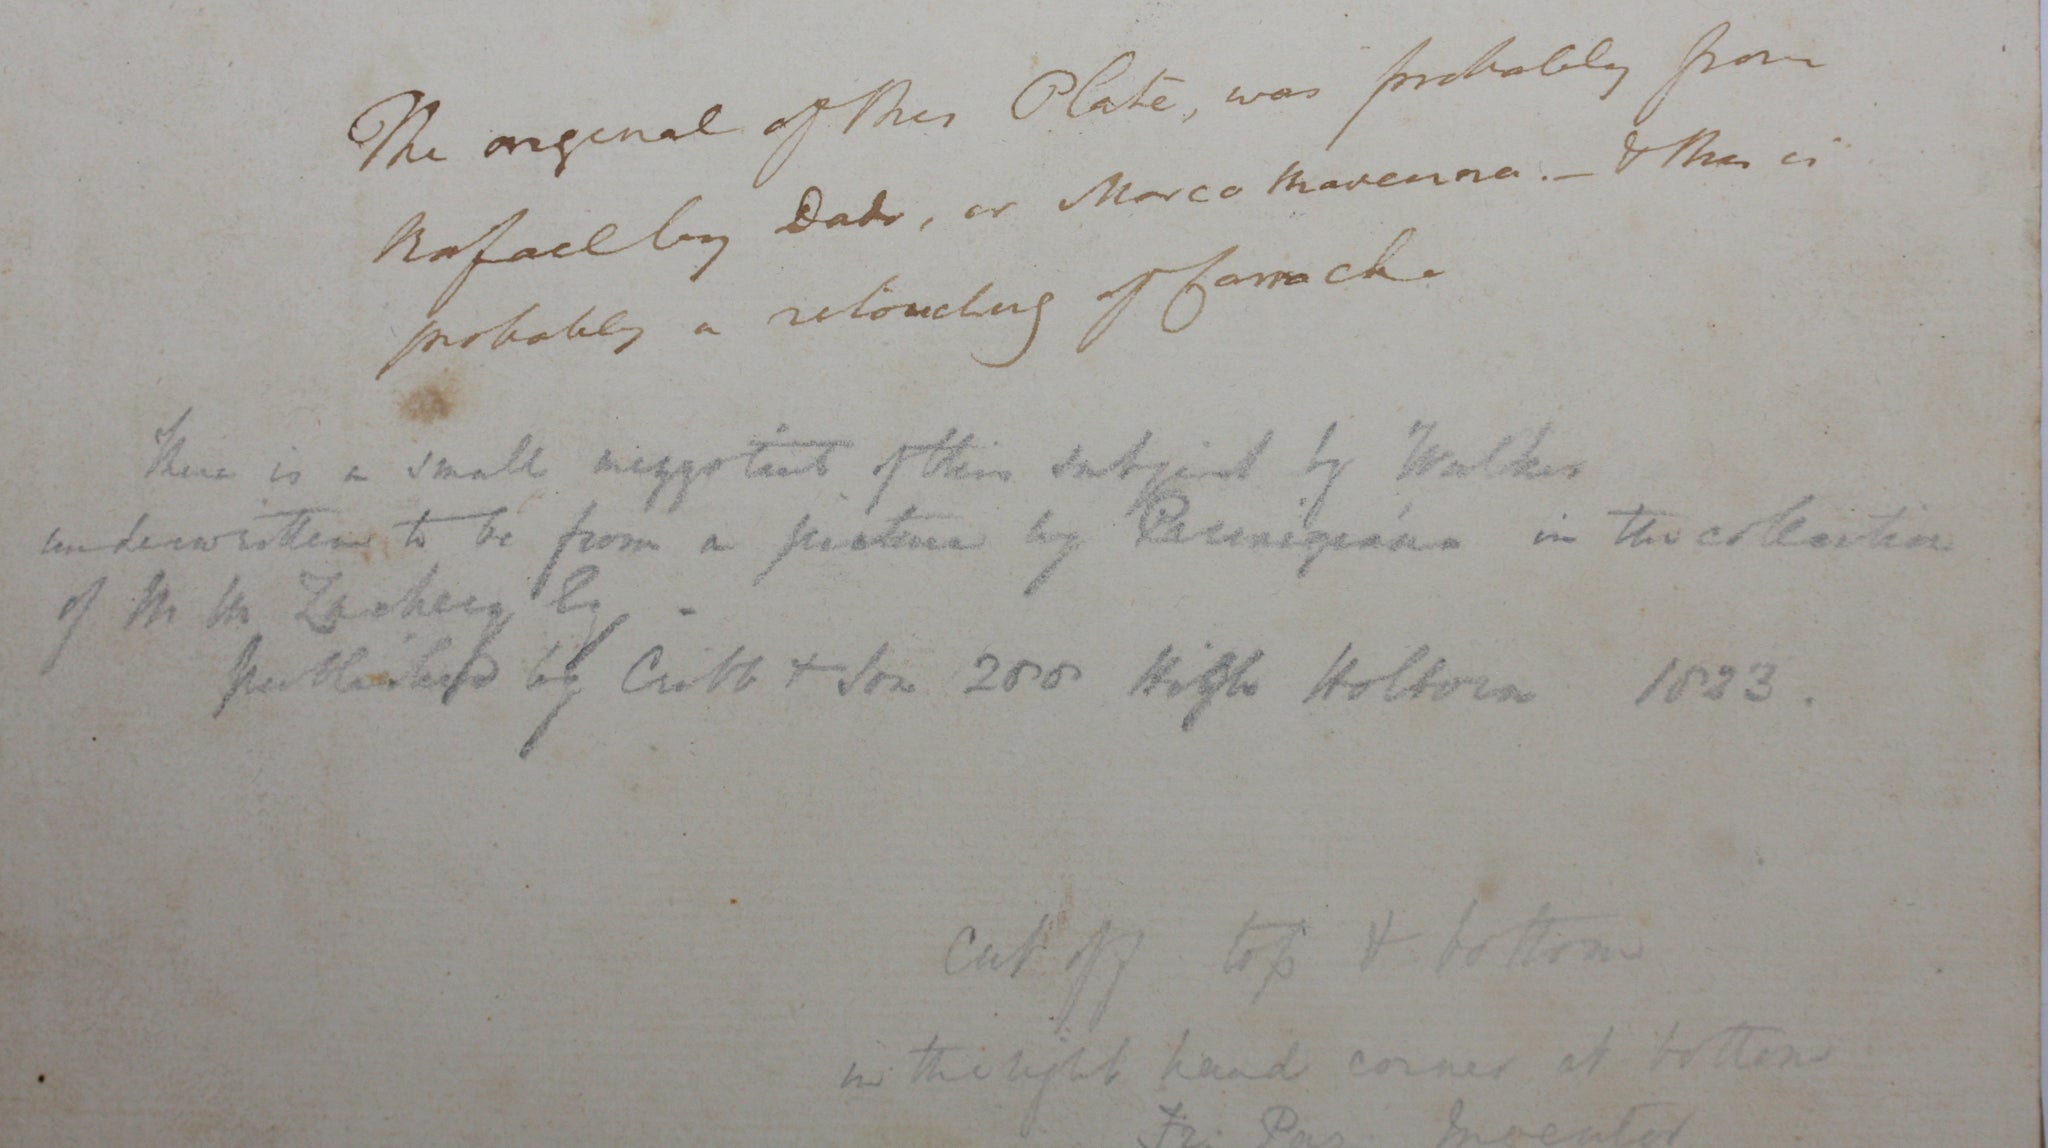 The original of this Plate, was probably from
Rafael by Dado, or Marco Ravenna. — & this is
probably a retouching of Carrach.
There is a small mezzotint of this subject by Walker
underwritten to be from a picture by Parmigiano in the collection
of M M Zachary Esq -
published by Cribb & Son 288 High Holborn 1823.
Cut off top & bottom
in the right hand corner at bottom
Fr. Par. Inventor